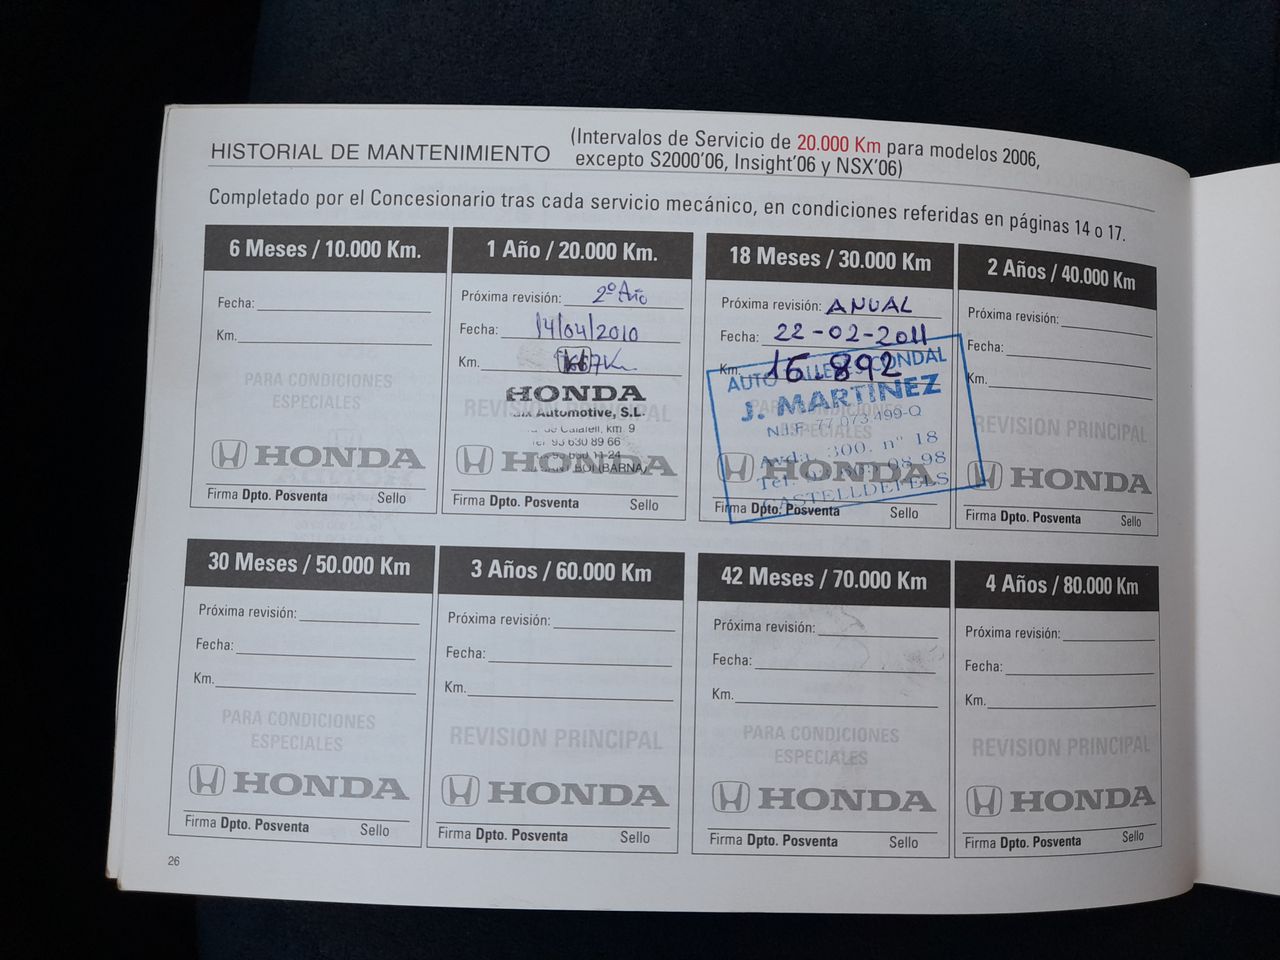 HISTORIAL DE MANTENIMIENTO
(Intervalos de Servicio de 20.000 Km para modelos 2006,
excepto S2000'06, Insight'06 y NSX'06)
Completado por el Concesionario tras cada servicio mecánico, en condiciones referidas en páginas 14 o 17.
6 Meses / 10.000 Km.
Fecha:
Km.
PARA CONDICIONES
ESPECIALES
HONDA
Firma Dpto. Posventa Sello
1 Año / 20.000 Km.
Próxima revisión: 2º Año
Fecha: 14/04/2010
Km.
HONDA
REVISION PRINCIPAL
Automotive, S.L.
Calafell, km. 9
93 630 89 66
HONDA
Firma Dpto. Posventa Sello
18 Meses / 30.000 Km
Próxima revisión: ANUAL
Fecha: 22-02-2011
Km. 16.892
AUTO TALLERES CONDAL
J. MARTINEZ
PARA CONDICIONES
ESPECIALES
N.I.F. 77.073.499-Q
Avda. 300. nº 18
HONDA
CASTELLDEFELS
Firma Dpto. Posventa Sello
2 Años / 40.000 Km
Próxima revisión:
Fecha:
Km.
REVISION PRINCIPAL
HONDA
Firma Dpto. Posventa Sello
30 Meses / 50.000 Km
Próxima revisión:
Fecha:
Km.
PARA CONDICIONES
ESPECIALES
HONDA
Firma Dpto. Posventa Sello
3 Años / 60.000 Km
Próxima revisión:
Fecha:
Km.
REVISION PRINCIPAL
HONDA
Firma Dpto. Posventa Sello
42 Meses / 70.000 Km
Próxima revisión:
Fecha:
Km.
PARA CONDICIONES
ESPECIALES
HONDA
Firma Dpto. Posventa Sello
4 Años / 80.000 Km
Próxima revisión:
Fecha:
Km.
REVISION PRINCIPAL
HONDA
Firma Dpto. Posventa Sello
26